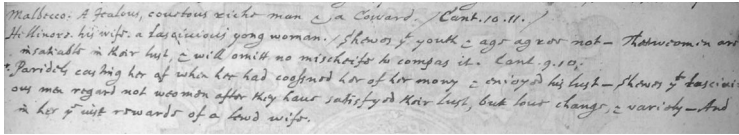 Malbecco. A Jealous, couetous riche man & a Coward. / Cant. 10. 11. /
Hellinore. his wife. a lasciuious yong woman. / Shewes yt youth & age agree not — That weomen are
insatiable in their lust, & will omitt no mischeife to compas it. Cant. 9. 10.
Paridels casting her of when hee had coosned her of her mony & enioyed his lust — shewes yt lasciui
ous men regard not weomen after they haue satisfyed their lust, but loue change, & variety — And
in her ye iust rewarde of a lewd wife.